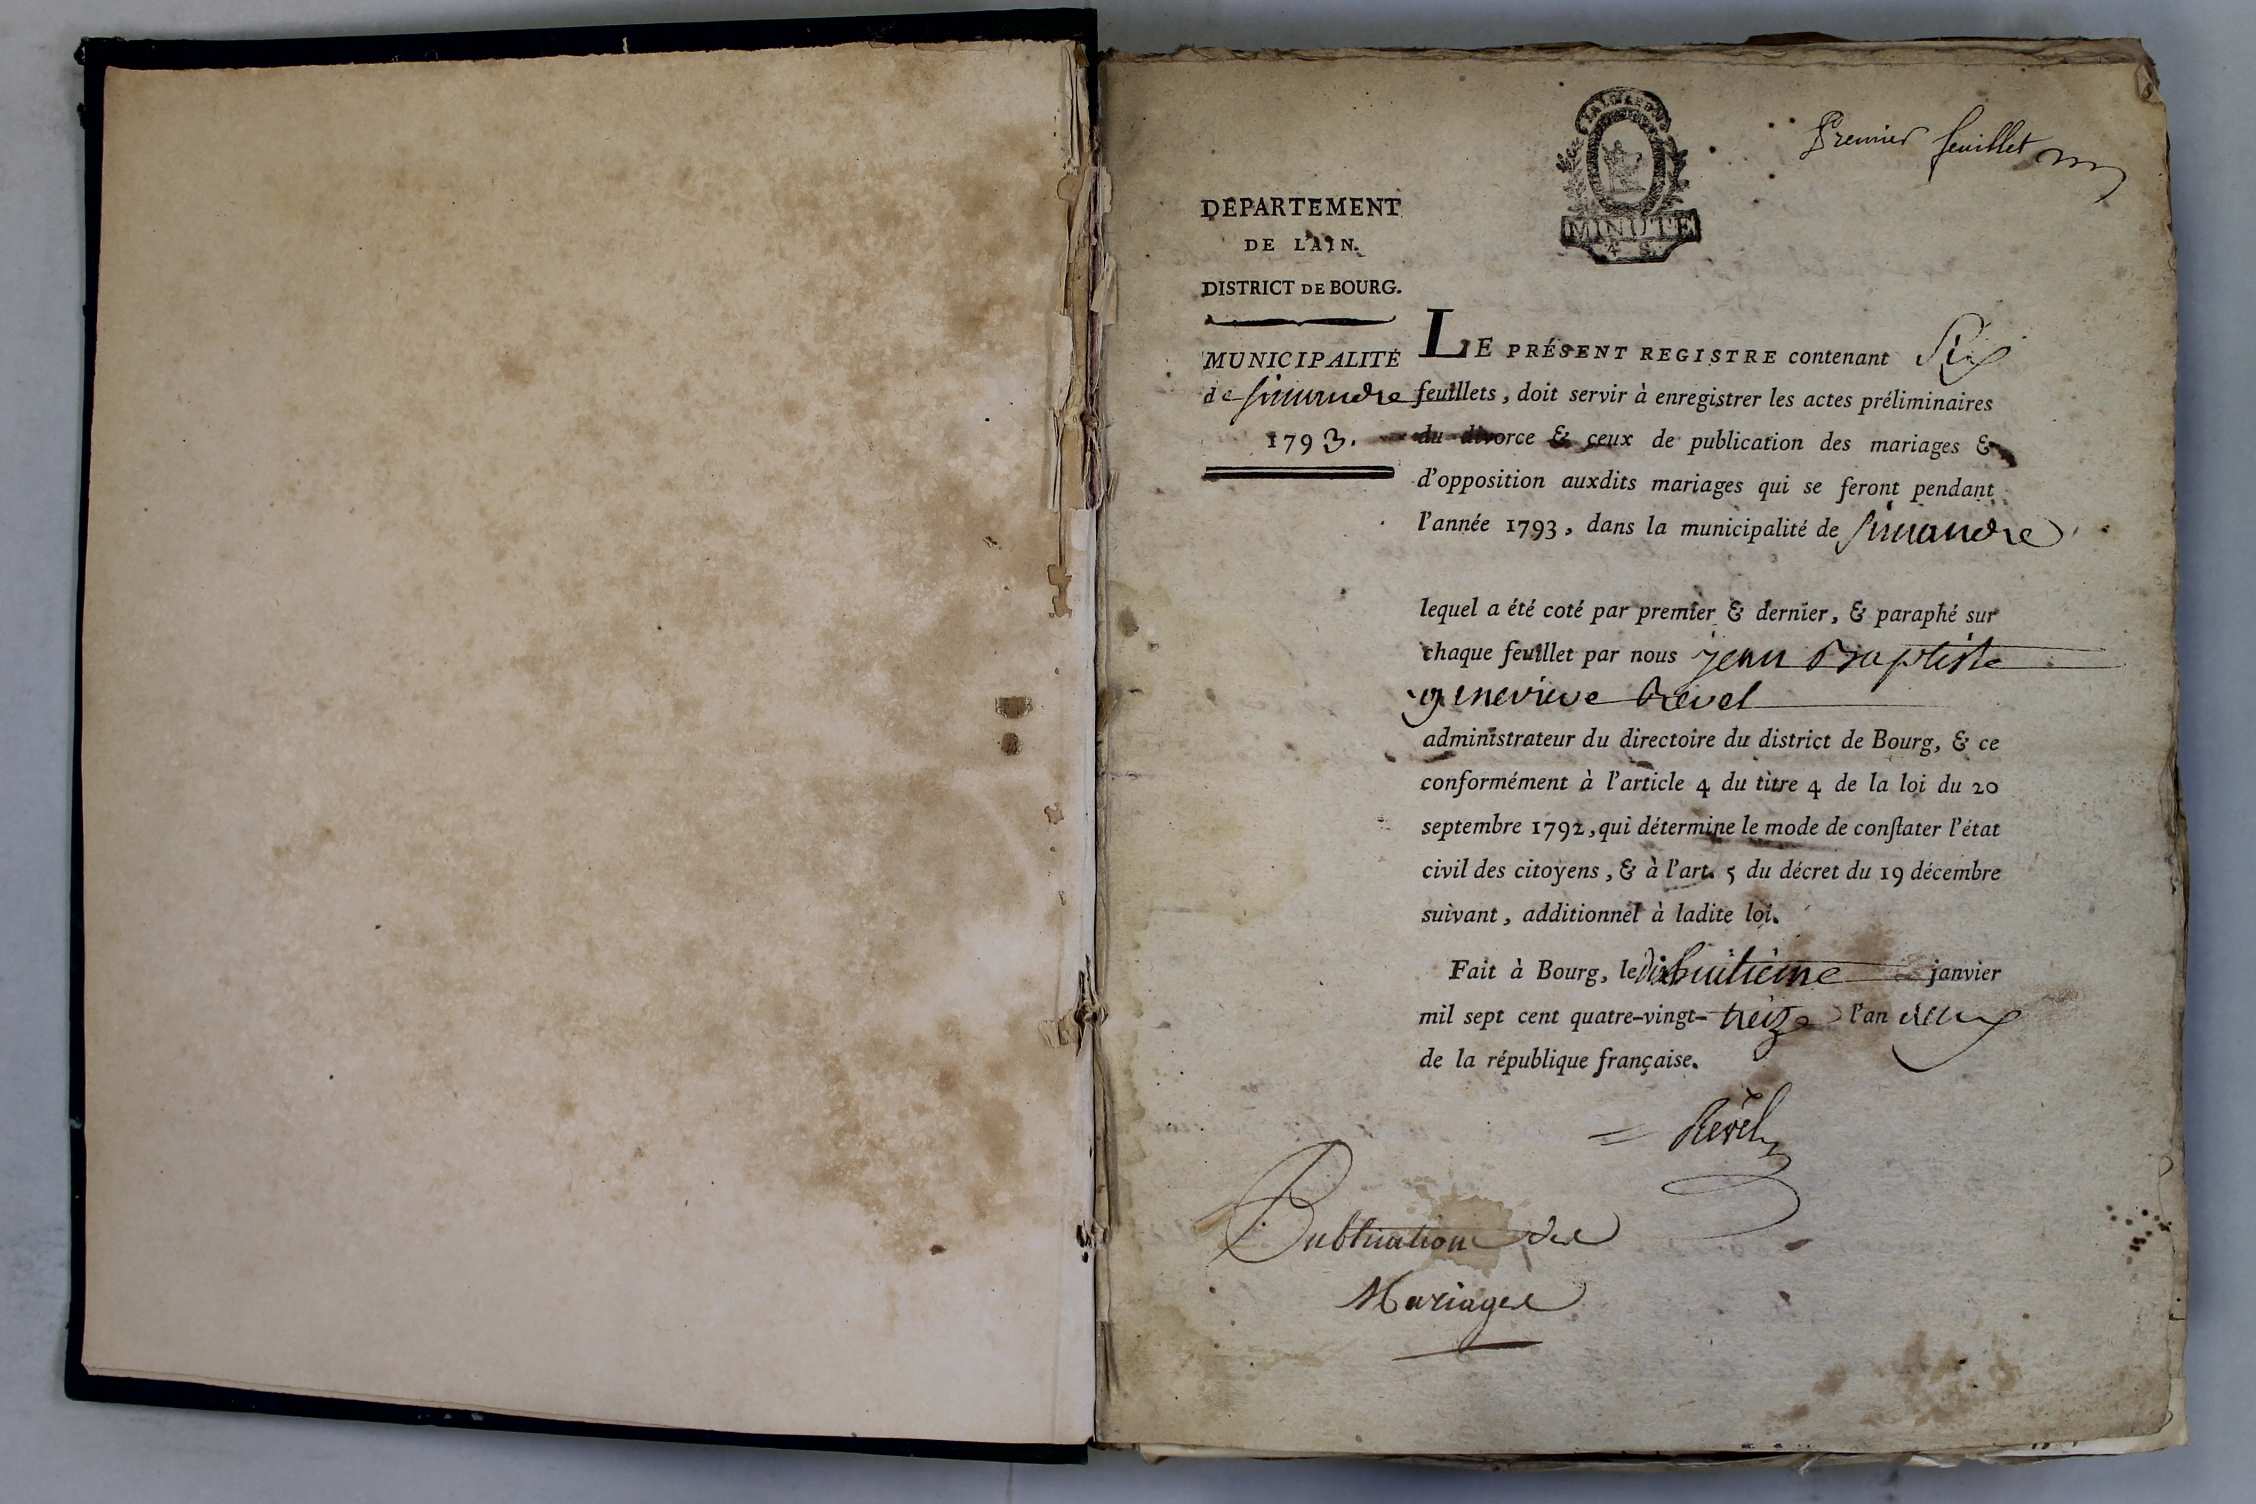 Premier feuillet
LA LOI
MINUTE
4 S.
DÉPARTEMENT
DE L'AIN.
DISTRICT DE BOURG.
MUNICIPALITÉ
de Simandre
1793.
LE PRÉSENT REGISTRE contenant Six
feuillets, doit servir à enregistrer les actes préliminaires
du divorce & ceux de publication des mariages &
d'opposition auxdits mariages qui se feront pendant
l'année 1793, dans la municipalité de Simandre
lequel a été coté par premier & dernier, & paraphé sur
chaque feuillet par nous jean Baptiste
genevieve Revel
administrateur du directoire du district de Bourg, & ce
conformément à l'article 4 du titre 4 de la loi du 20
septembre 1792, qui détermine le mode de conſtater l'état
civil des citoyens, & à l'art. 5 du décret du 19 décembre
suivant, additionnel à ladite loi.
Fait à Bourg, le dixhuitième janvier
mil sept cent quatre-vingt-treize l'an deux
de la république française.
Revel
Publication des
Mariages